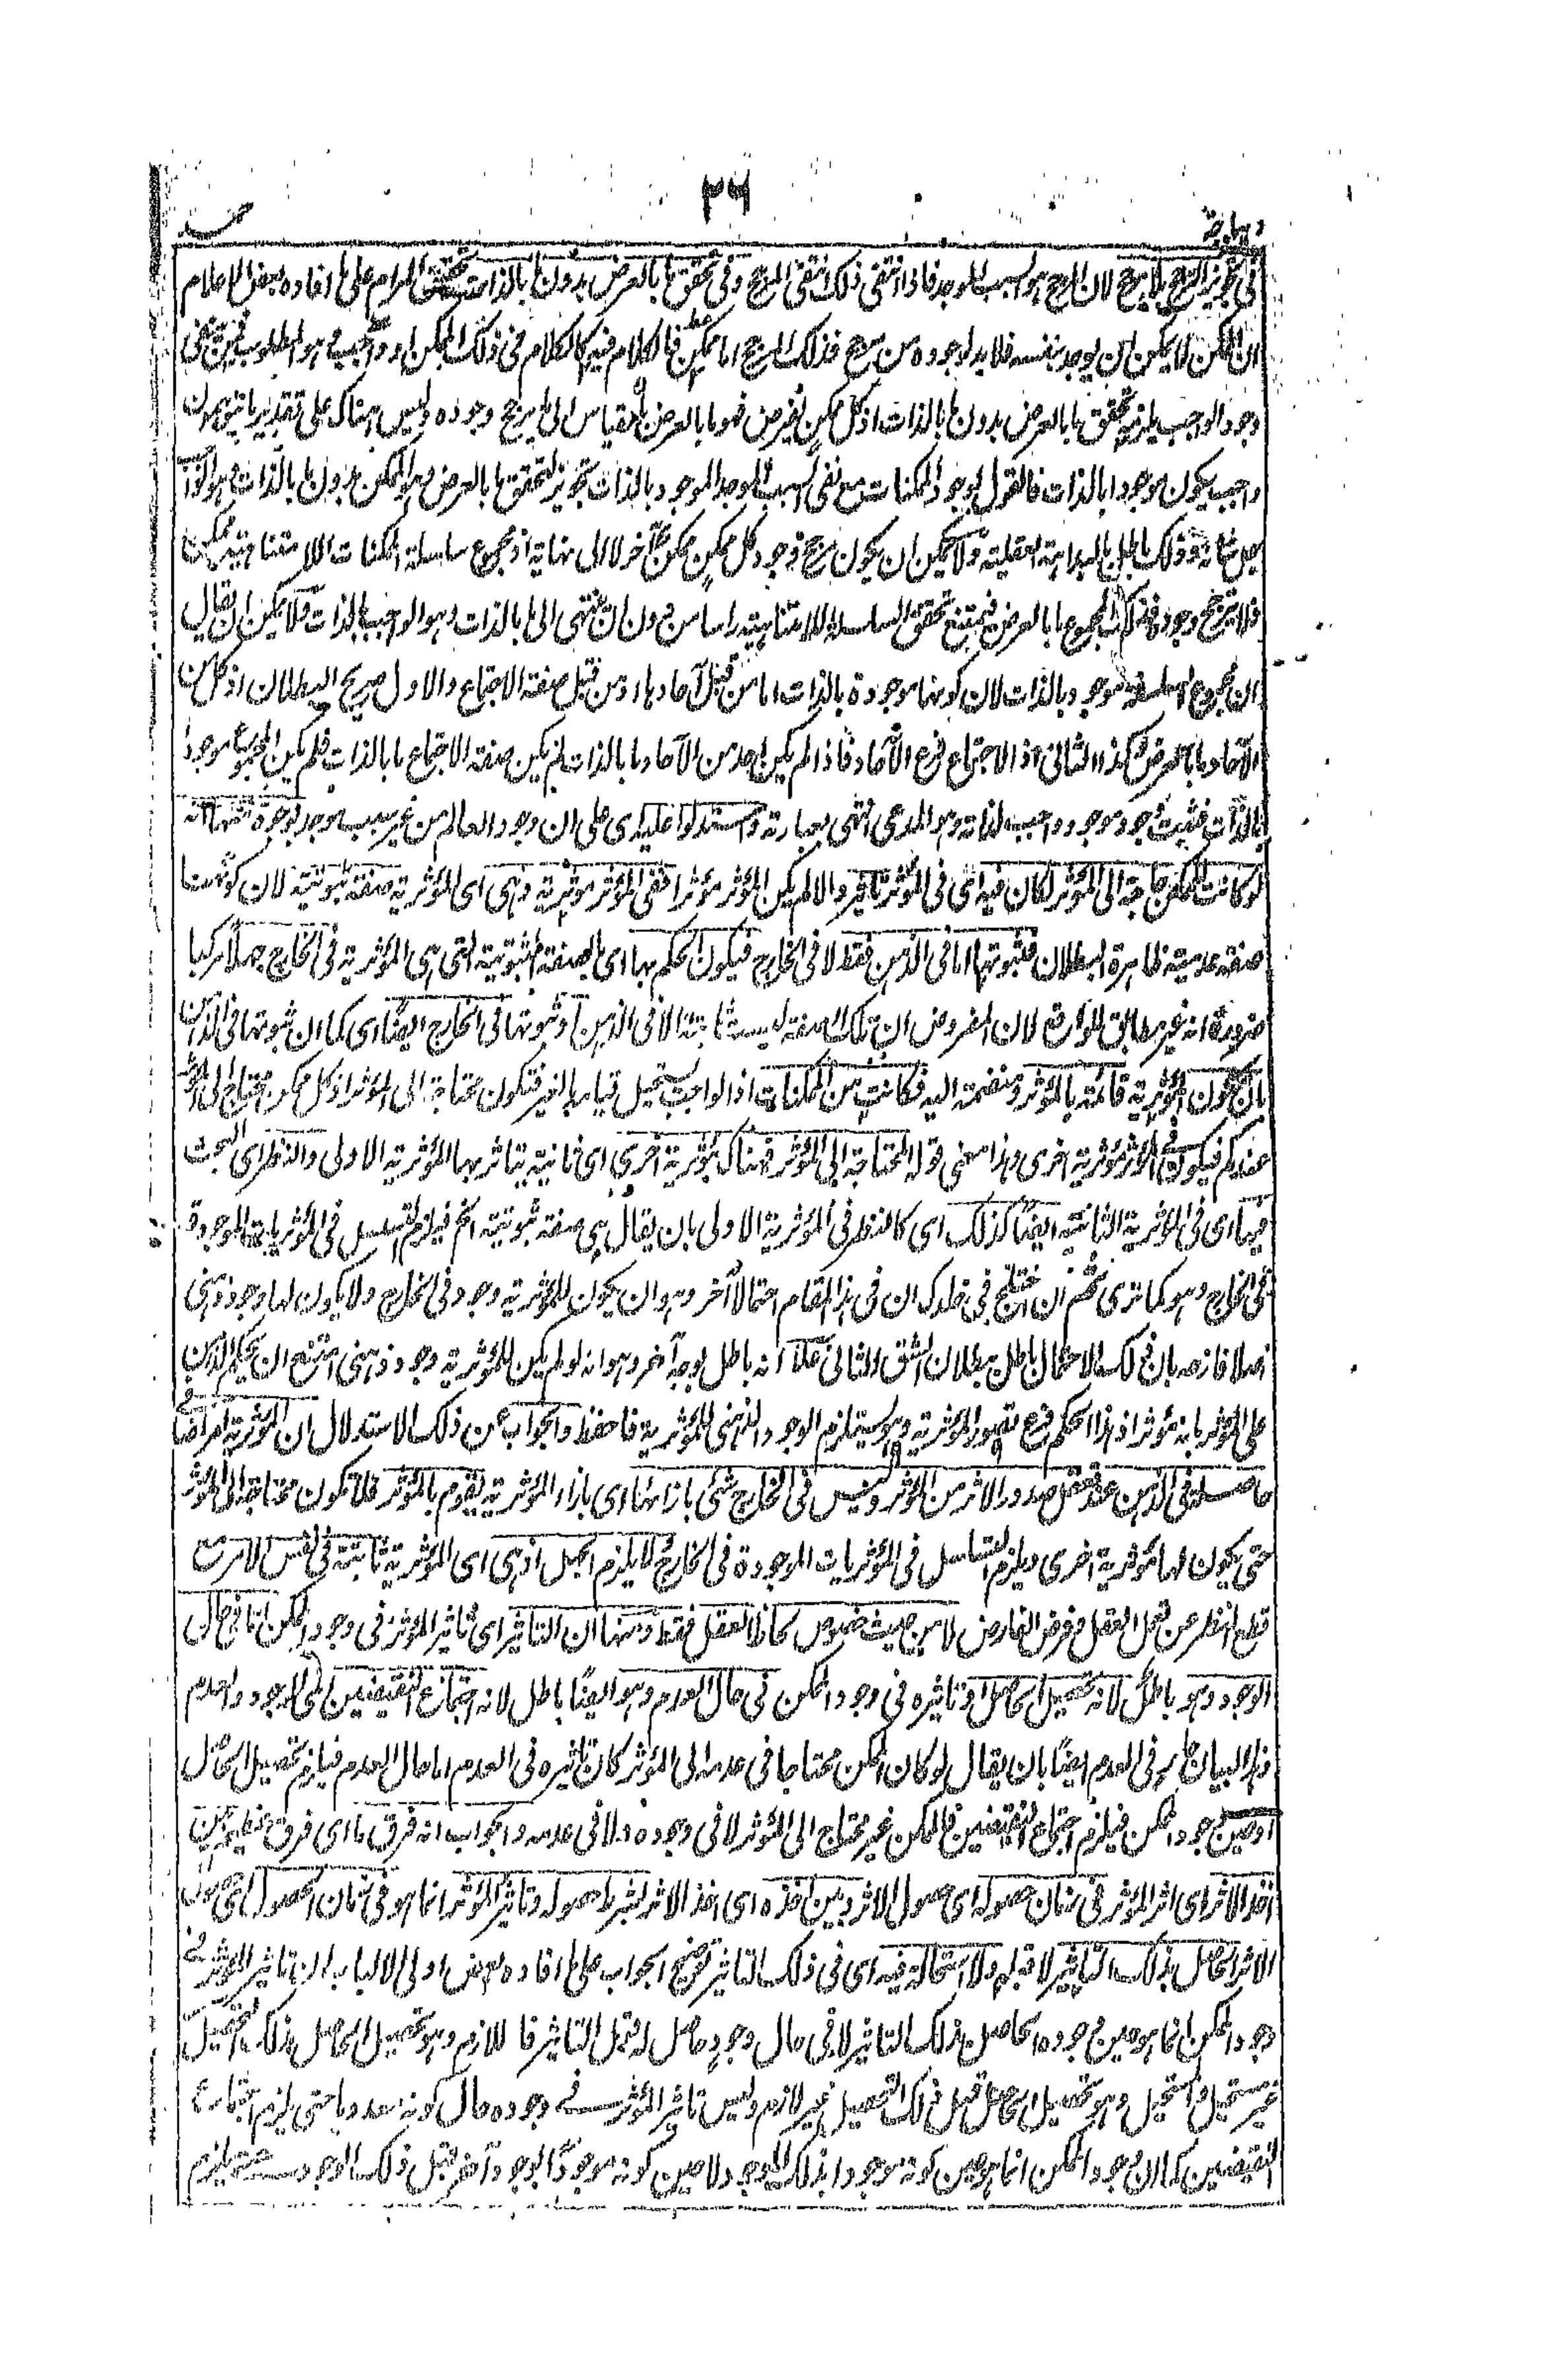 ٣٦
ديباجة
فى تجويز الترجيح بلا مرجح لان المرجح هو السبب الموجد فاذا انتفى ذلك انتفى المرجح وفى تحقق ما بالعرض بدون ما بالذات تحقيق المرام على ما افاده بعض الاعلام
ان الممكن لا يمكن ان يوجد بنفسه فلا بد لوجوده من مرجح فذلك المرجح اما ممكن فالكلام فيه كالكلام فى ذلك الممكن او واجب وهو المطلوب فمن نفى
وجود الواجب يلزمه تحقق ما بالعرض بدون ما بالذات اذ كل ممكن يفرض فهو ما بالعرض بالقياس الى ما يرجح وجوده وليس هناك على تقدير نفيه
واجب يكون موجودا بالذات فالقول بوجود الممكنات مع نفى السبب الموجد الموجود بالذات تجويز لتحقق ما بالعرض وهو الممكن بدون ما بالذات وهو الواجب
جل شانه وذلك باطل بالبداهة العقلية ولا يمكن ان يكون مرجح وجود كل ممكن ممكنا آخر لا الى نهاية اذ مجموع سلسلة الممكنات اللا متناهية ممكن
فلا يترجح وجوده فذلك المجموع ما بالعرض فيمتنع تحقق السلسلة اللامتناهية راسا من دون ان تنتهى الى ما بالذات وهو الواجب بالذات ولا يمكن ان يقال
ان مجموع السلسلة موجود بالذات لان كونها موجودة بالذات اما من قبل آحادها او من قبل صفة الاجتماع والاول صريح البطلان اذ كل من
الآحاد ما بالعرض وكذا الثانى اذ الاجتماع فرع الآحاد فاذا لم يكن احد من الآحاد ما بالذات لم يكن صفة الاجتماع ما بالذات فلم يكن المجموع موجودا
بالذات فثبت وجود موجود واجب لذاته وهو المدعى انتهى بعبارته واستدلوا عليه اى على ان وجود العالم من غير سبب موجد بوجوه منها انه
لو كانت للممكن حاجة الى المؤثر لكان فيه اى فى المؤثر تاثير والا لم يكن المؤثر مؤثرا ففى المؤثر مؤثرية وهى اى المؤثرية صفة ثبوتية لان كونها
صفة عدمية ظاهرة البطلان فثبوتها اما فى الذهن فقط لا فى الخارج فيكون الحكم بها اى بالصفة الثبوتية التى هى المؤثرية فى الخارج جهلا مركبا
ضرورة انه غير مطابق للواقع لان المفروض ان تلك الصفة ليست ثابتة الا فى الذهن او ثبوتها فى الخارج ايضًا اى كما ان ثبوتها فى الذهن
بان تكون المؤثرية قائمة بالمؤثر ومنضمة اليه فكانت من الممكنات اذ الواجب يستحيل قيامه بالغير فتكون محتاجة الى المؤثر اذ كل ممكن محتاج الى المؤثر
عندكم فيكون فى المؤثر مؤثرية اخرى وهذا معنى قوله المحتاجة الى المؤثر فهناك مؤثرية اخرى اى ثانية يتاثر بها المؤثرية الاولى والنظر اى البحث
فيها اى فى المؤثرية الثانية ايضًا كذلك اى كالنظر فى المؤثرية الاولى بان يقال هى صفة ثبوتية الخ فيلزم التسلسل فى المؤثريات الموجودة
فى الخارج وهو كما ترى ثم ان اختلج فى خلدك ان فى هذا المقام احتمالا آخر وهو ان يكون للمؤثرية وجود فى الخارج ولا يكون لها وجود ذهنى
اصلا فازحه بان ذلك الاحتمال باطل ببطلان الشق الثانى علا انه باطل بوجه آخر وهو انه لو لم يكن للمؤثرية وجود ذهنى امتنع ان يحكم الذهن
على المؤثر بانه مؤثر اذ هذا الحكم فرع تصور المؤثرية وهو يستلزم الوجود الذهنى للمؤثرية فاحفظ والجواب عن ذلك الاستدلال ان المؤثرية امر اضافى
حاصلة فى الذهن عند تعقل صدور الاثر من المؤثر وليس فى الخارج شئ بازائها اى بازاء المؤثرية يقوم بالمؤثر فلا تكون محتاجة الى المؤثر
حتى يكون لها مؤثرية اخرى ويلزم التسلسل فى المؤثريات الموجودة فى الخارج ولا يلزم الجهل اذ هى اى المؤثرية ثابتة فى نفس الامر مع
قطع النظر عن عمل العقل وفرض الفارض لا من حيث خصوص لحاظ العقل فقط ومنها ان التاثير اى تاثير المؤثر فى وجود الممكن اما فى حال
الوجود وهو باطل لانه تحصيل الحاصل او تاثيره فى وجود الممكن فى حال العدم وهو ايضًا باطل لانه اجتماع النقيضين اى الوجود والعدم
وهذا البيان جار فى العدم ايضًا بان يقال لو كان الممكن محتاجا فى عدمه الى المؤثر كان تاثيره فى العدم اما حال العدم فيلزم تحصيل الحاصل
او حين وجود الممكن فيلزم اجتماع النقيضين فالممكن غير محتاج الى المؤثر لا فى وجوده ولا فى عدمه والجواب انه فرق ما اى فرق عظيم بين
اخذ الاثر اى اثر المؤثر فى زمان حصوله اى حصول الاثر وبين اخذه اى اخذ الاثر بشرط حصوله وتاثير المؤثر انما هو فى زمان الحصول اى حصول
الاثر الحاصل بذلك التاثير لا قبله ولا استحالة فيه اى فى ذلك التاثير توضيح الجواب على ما افاده بعض اولى الالباب ان تاثير المؤثر فى
وجود الممكن انما هو حين وجوده الحاصل بذلك التاثير لا فى حال وجودٍ حاصل له قبل التاثير فاللازم وهو تحصيل الحاصل بذلك التحصيل
غير مستحيل والمستحيل وهو تحصيل الحاصل قبل ذلك التحصيل غير لازم وليس تاثير المؤثر فى وجوده حال كونه معدوما حتى يلزم اجتماع
النقيضين كما ان وجود الممكن انما هو حين كونه موجودا بذلك الوجود لا حين كونه موجودًا بوجود آخر قبل ذلك الوجود حتى يلزم